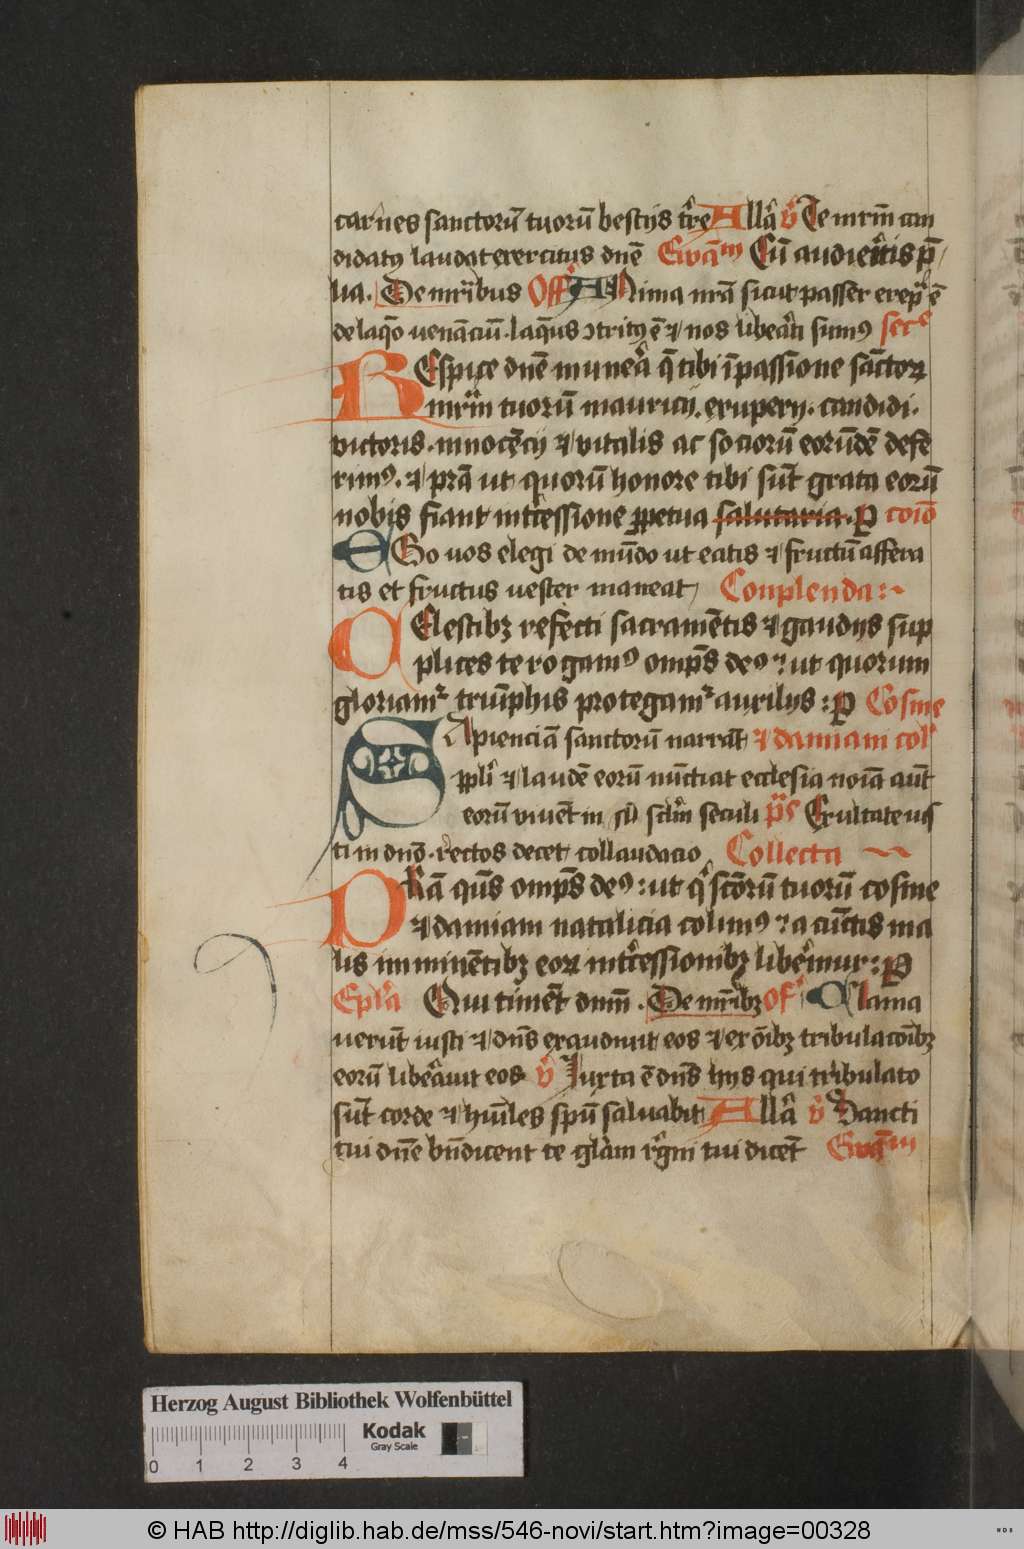 carnes sanctorū tuorū bestijs tr̄re Allã v̄ Te mrm̄ can
didatꝯ laudat exercitus dnē Ewãm Cū audieritis p̄
lia. De mr̄ibus Off ANima nr̄a sicut passer erepta ē
de laq̄o uenanciū. laq̄us ↄtritꝯ ē ⁊ nos liberati sumꝯ secr
REspice dnē munera q̄ tibi ī passione sāctoꝝ
mrm̄ tuorū mauricij. exuperij. candidi.
victoris. innocēcij ⁊ vitalis ac socioru eorūdē defe
rimꝯ. ⁊ pr̄a ut quorū honore tibi sūt grata eorū
nobis fiant int̄cessione ꝑpetua salutaria. P cōio
EGo uos elegi de mūdo ut eatis ⁊ fructū affera
tis et fructus uester maneat Conplenda
CElestibꝫ refecti sacramētis ⁊ gaudijs sup
plices te rogamꝯ omp̄s deꝯ: ut quorum
gloriamur triūphis protegamur auxilijs: P Cosme
SApienciā sanctorū narrāt ⁊ damiani coll
ppl̄i ⁊ laudē eorū nūctiat ecclesia noīa aut̄
eorū viuēt in scl̄m seculi p̄s Exultate ius
ti in dn̄o. rectos decet collaudacio Collecta
PRa q̄s omp̄s deꝯ: ut qi sctōrū tuorū cosme
⁊ damiani natalicia colimꝯ: a cūctis ma
lis imminētibꝫ eoꝝ int̄cessionibꝫ liberemur: P
Epl̄a Qui timēt dnm̄. De mr̄ibꝫ Gͬ Clama
uerūt iusti ⁊ dn̄s exaudiuit eos ⁊ ex oīibꝫ tribulacōibꝫ
eorū liberauit eos v̄ Juxta ē dn̄s hijs qui tribulato
sūt corde ⁊ hūiles spū saluabit Allã v̄ Sancti
tui dnē bn̄dicent te glām regni tui dicēt Ewãm
Herzog August Bibliothek Wolfenbüttel
Kodak
Gray Scale
0 1 2 3 4
© HAB http://diglib.hab.de/mss/546-novi/start.htm?image=00328
HAB